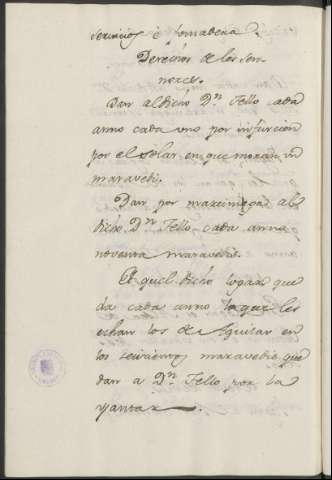 servicios é fonsadera.
Derechos de los Sen-
nores.
Dan al dicho Dn. Tello cada
anno cada uno por infurcion
por el solar en que moran un
maravedi.
Dan por martiniega al
dicho Dn. Tello cada anno
noventa maravedis.
El quel dicho logar que
da cada anno lo que les
echan los de Aguilar en
los seiscientos maravedis que
dan a Dn. Tello por la
yantar.